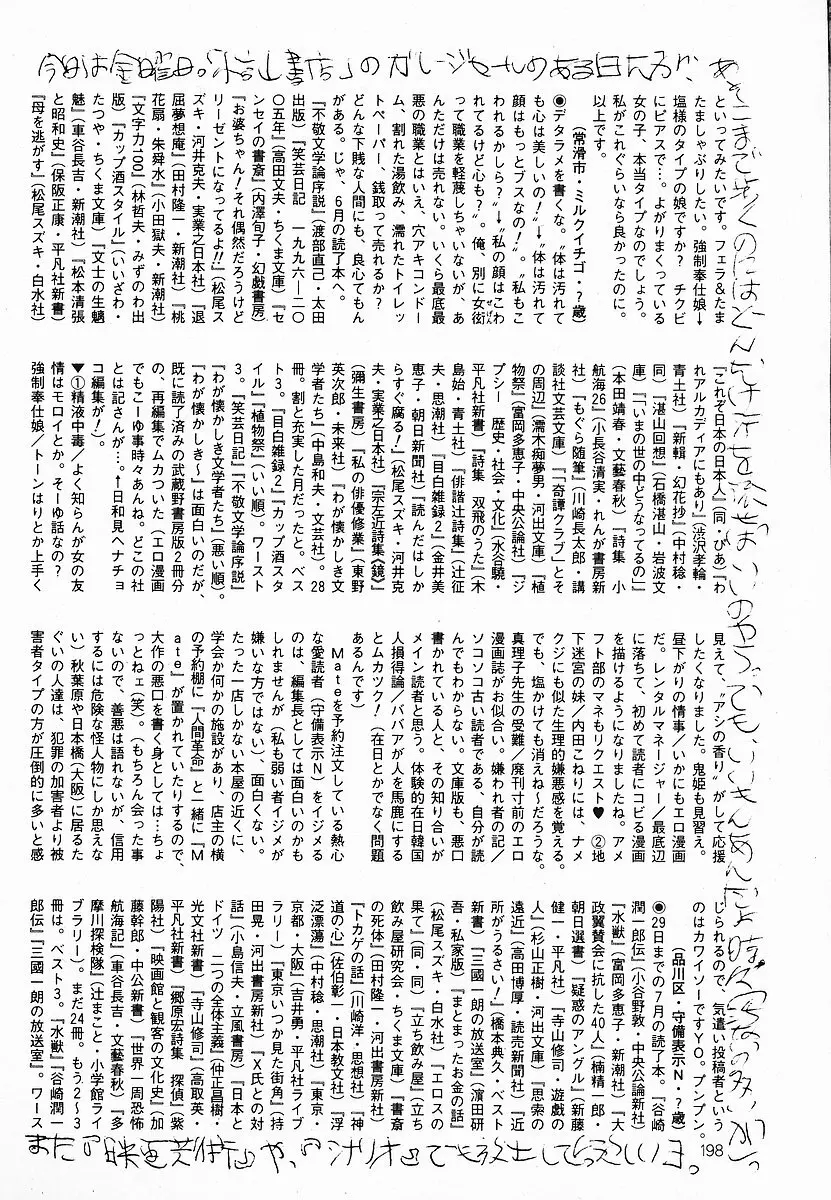 今日は金曜日。
のガレージセールのある日
といってみたいです。フェラ&たま
たましゃぶりしたい。強制奉仕娘→
塩様のタイプの娘ですか? チクビ
にピアスで…。よがりまくっている
女の子、本当タイプなのでしょう。
私がこれぐらいなら良かったのに。
以上です。
(常滑市・ミルクイチゴ・?歳)
◉デタラメを書くな。〝体は汚れて
も心は美しいの!〟→〝体は汚れて
顔はもっとブスなの!〟。〝私もこ
われるかしら?〟→〝私の顔はこわ
れてるけど心も?〟。俺、別に女衒
って職業を軽蔑しちゃいないが、あ
んただけは売れない。いくら最底最
悪の職業とはいえ、穴アキコンドー
ム、割れた湯飲み、濡れたトイレッ
トペーパー、銭取って売れるか?
どんな下賎な人間にも、良心てもん
がある。じゃ、6月の読了本へ。
『不敬文学論序説』(渡部直己・太田
出版)『笑芸日記 一九九六―二〇
〇五年』(高田文夫・ちくま文庫)『セ
ンセイの書斎』(内澤旬子・幻戯書房)
『お婆ちゃん!それ偶然だろうけど
リーゼントになってるよ!!』(松尾ス
ズキ・河井克夫・実業之日本社)『退
屈夢想庵』(田村隆一・新潮社)『桃
花扇・朱舜水』(小田獄夫・新潮社)
『文字力100』(林哲夫・みずのわ出
版)『カップ酒スタイル』(いいざわ・
たつや・ちくま文庫)『文士の生魑
魅』(車谷長吉・新潮社)『松本清張
と昭和史』(保阪正康・平凡社新書)
『母を逃がす』(松尾スズキ・白水社)
『これぞ日本の日本人』(同・ぴあ)『わ
れアルカディアにもあり』(渋沢孝輔・
青土社)『新輯・幻花抄』(中村稔・
同)『湛山回想』(石橋湛山・岩波文
庫)『いまの世の中どうなってるの』
(本田靖春・文藝春秋)『詩集 小
航海26』(小長谷清実・れんが書房新
社)『もぐら随筆』(川崎長太郎・講
談社文芸文庫)『「奇譚クラブ」とそ
の周辺』(濡木痴夢男・河出文庫)『植
物祭』(富岡多恵子・中央公論社)『ジ
プシー 歴史・社会・文化』(水谷驍・
平凡社新書)『詩集 双飛のうた』(木
島始・青土社)『俳諧辻詩集』(辻征
夫・思潮社)『目白雑録2』(金井美
恵子・朝日新聞社)『読んだはしか
らすぐ腐る!』(松尾スズキ・河井克
夫・実業之日本社)『宗左近詩集《鏡》』
(彌生書房)『私の俳優修業』(東野
英次郎・未来社)『わが懐かしき文
学者たち』(中島和夫・文芸社)。28
冊。割と充実した月だったと。ベス
ト3。『目白雑録2』『カップ酒スタ
イル』『植物祭』(いい順)。ワースト
3。『笑芸日記』『不敬文学論序説』
『わが懐かしき文学者たち』(悪い順)。
『わが懐かしき〜』は面白いのだが、
既に読了済みの武蔵野書房版2冊分
の、再編集でムカついた(エロ漫画
でもこーゆ事時々あんね。どこの社
とは記さんが…。↑日和見ヘナチョ
コ編集が!)。
▼①精液中毒/よく知らんが女の友
情はモロイとか。そーゆ話なの?
強制奉仕娘/トーンはりとか上手く
見えて、〝アシの香り〟がして応援
したくなりました。鬼姫も見習え。
昼下がりの情事/いかにもエロ漫画
だ。レンタルマネージャー/最底辺
に落ちて、初めて読者にコビる漫画
を描けるようになりましたね。アメ
フト部のマネもリクエスト♥ ②地
下迷宮の妹/内田こねりには、ナメ
クジにも似た生理的嫌悪感を覚える。
でも、塩かけても消えね〜だろうな。
真理子先生の受難/廃刊寸前のエロ
漫画誌がお似合い。嫌われ者の記/
ソコソコ古い読者である、自分が読
んでもわからない。文庫版も、悪口
書かれている人と、その知り合いが
メイン読者と思う。体験的在日韓国
人損得論/ババアが人を馬鹿にする
とムカツク!(在日とかでなく問題
あるんです)
Mateを予約注文している熱心
な愛読者(守備表示N)をイジメる
のは、編集長としては面白いのかも
しれませんが(私も弱い者イジメが
嫌いな方ではない)、面白くない。
たった一店しかない本屋の近くに、
学会か何かの施設があり、店主の横
の予約棚に『人間革命』と一緒に『M
ate』が置かれていたりするので、
大作の悪口を書く身としては…ちょ
っとねェ(笑)。(もちろん会った事
ないので、善悪は語れないが、信用
するには危険な怪人物にしか思えな
い)秋葉原や日本橋(大阪)に居るた
ぐいの人達は、犯罪の加害者より被
害者タイプの方が圧倒的に多いと感
じられるので、気遣い投稿者という
のはカワイソーですYO。プンプン。
(品川区・守備表示N・?歳)
◉29日までの7月の読了本。『谷崎
潤一郎伝』(小谷野敦・中央公論新社)
『水獣』(富岡多恵子・新潮社)『大
政翼賛会に抗した40人』(楠精一郎・
朝日選書)『疑惑のアングル』(新藤
健一・平凡社)『寺山修司・遊戯の
人』(杉山正樹・河出文庫)『思索の
遠近』(高田博厚・読売新聞社)『近
所がうるさい!』(橋本典久・ベスト
新書)『三國一朗の放送室』(濵田研
吾・私家版)『まとまったお金の話』
(松尾スズキ・白水社)『エロスの
果て』(同・同)『立ち飲み屋』(立ち
飲み屋研究会・ちくま文庫)『書斎
の死体』(田村隆一・河出書房新社)
『トカゲの話』(川崎洋・思想社)『神
道の心』(佐伯彰一・日本教文社)『浮
泛漂蕩』(中村稔・思潮社)『東京・
京都・大阪』(吉井勇・平凡社ライブ
ラリー)『東京いつか見た街角』(持
田晃・河出書房新社)『X氏との対
話』(小島信夫・立風書房)『日本と
ドイツ 二つの全体主義』(仲正昌樹・
光文社新書)『寺山修司』(高取英・
平凡社新書)『郷原宏詩集 探偵』(紫
陽社)『映画館と観客の文化史』(加
藤幹郎・中公新書)『世界一周恐怖
航海記』(車谷長吉・文藝春秋)『多
摩川探検隊』(辻まこと・小学館ライ
ブラリー)。まだ24冊。もう2〜3
冊は。ベスト3。『水獣』『谷崎潤一
郎伝』『三國一朗の放送室』。ワース
あそこまで歩くのにはどんだけ汗を流せばいいのやら。でも、いいもんあんだよ時々
また『映画芸術』や、『シナリオ』
198